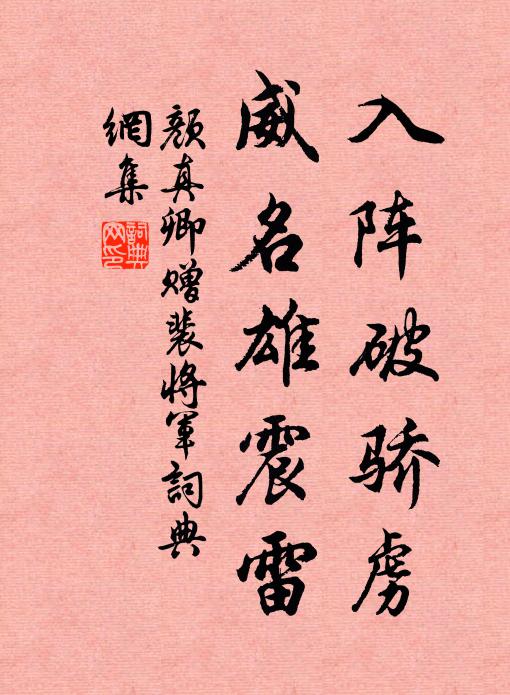 入阵破骄虏
威名雄震雷
颜真卿赠裴将军詞典
網集
詞典
网印